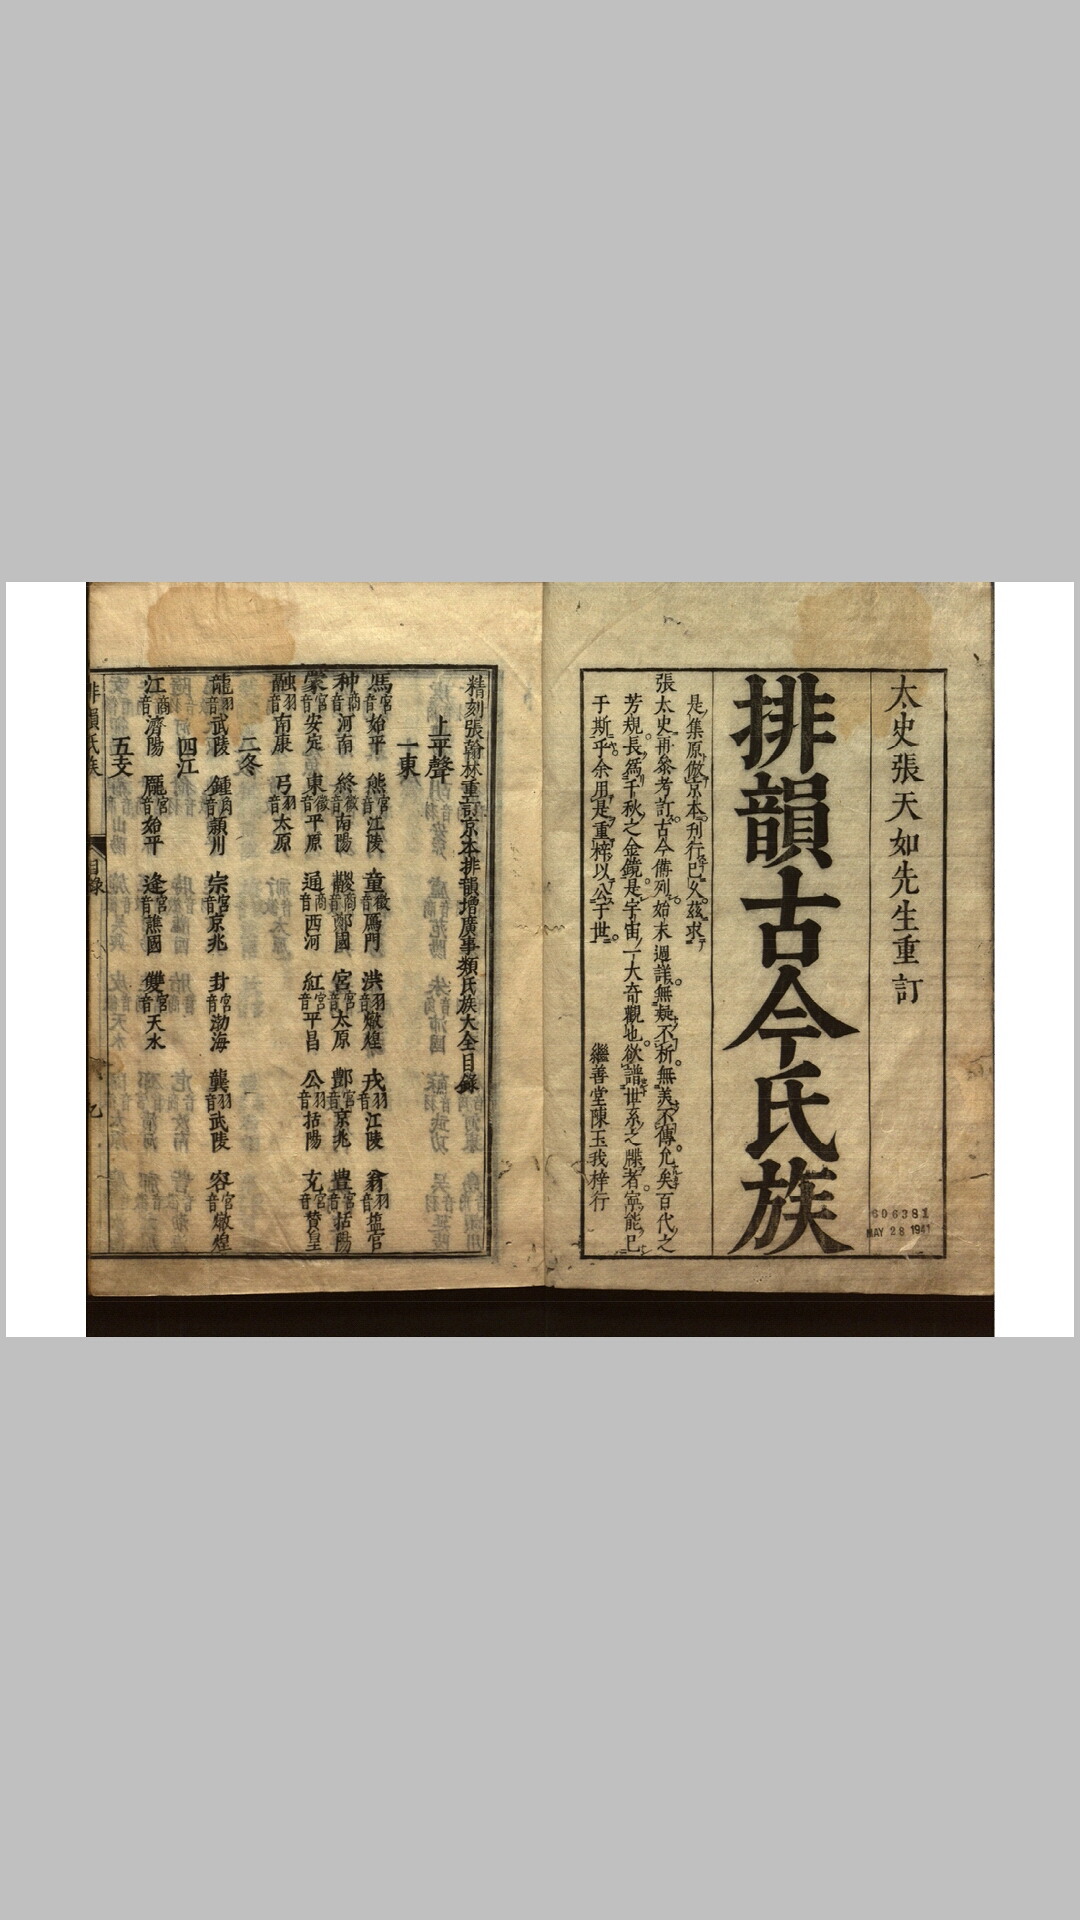 太史張天如先生重訂
排韻古今氏族
是集原倣京本刊行已久茲求
張太史再叅考訂古今備列始末週詳無疑不析無美不傳允矣百代之
芳規長爲千秋之金鏡是宇宙一大奇觀也欲譜世系之牒者寧能已
于斯乎余用是重梓以公于世
繼善堂陳玉我梓行
606381
MAY 28 1941
精刻張翰林重訂京本排韻增廣事類氏族大全目錄
上平聲
一東
馮宮音始平 熊宮音江陵 童徵音鴈門 洪羽音燉煌 戎羽音江陵 翁羽音塩官
种商音河南 終徵音南陽 鬷商音鄭國 宮宮音太原 酆宮音京兆 豊宮音括陽
蒙宮音安定 東徵音平原 通商音西河 紅宮音平昌 公羽音括陽 充宮音贊皇
融羽音南康 弓羽音太原
二冬
龍羽音武陵 鍾角音潁川 宗宮音京兆 封宮音渤海 龔羽音武陵 容宮音燉煌
四江
江商音濟陽 龐宮音始平 逄宮音譙國 雙宮音天水
五支
排韻氏族
目錄